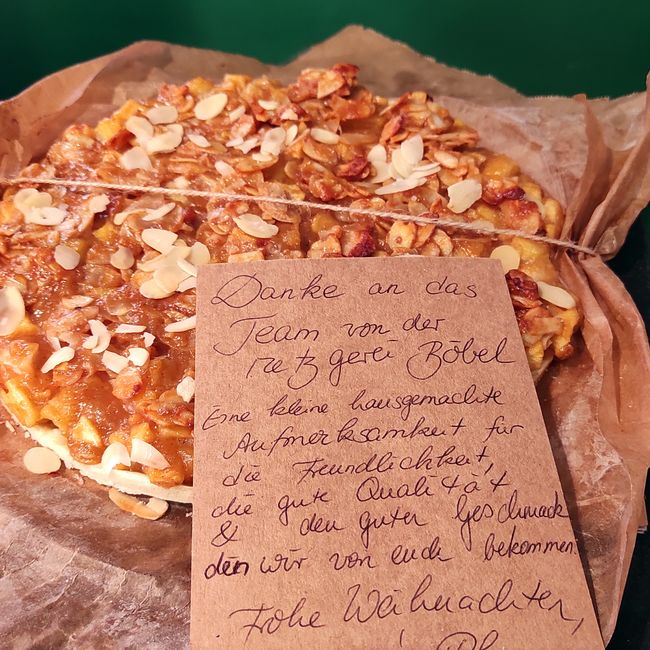 Danke an das
Team von der
Metzgerei Böbel
Eine kleine hausgemachte
Aufmerksamkeit für
die Freundlichkeit,
die gute Qualität
& den guten Geschmack
den wir von euch bekommen.
Frohe Weihnachten,